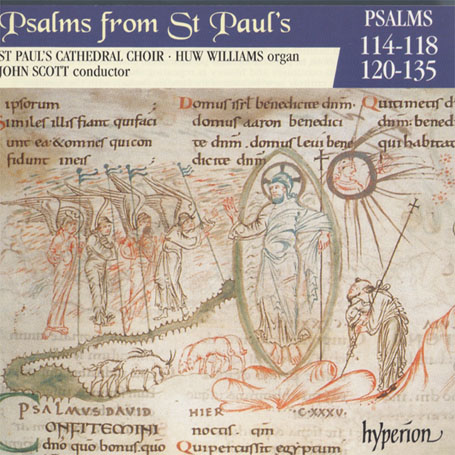 Psalms from St Paul's
ST PAUL'S CATHEDRAL CHOIR · HUW WILLIAMS organ
JOHN SCOTT conductor
PSALMS
114-118
120-135
ipsorum
Similes illis fiant quifaci
unt ea & omnes qui con
fidunt ineis
Domus isrl benedicite dnm.
domus aaron benedici
te dnm. domus levi bene
dicite dnm.
Qui timetis d
qui habitat
PSALMUS DAVID
CONFITEMINI
dno quo bonus. quo
HIER
noctis. qm
Qui percussit egyptum
CXXXV.
hyperion